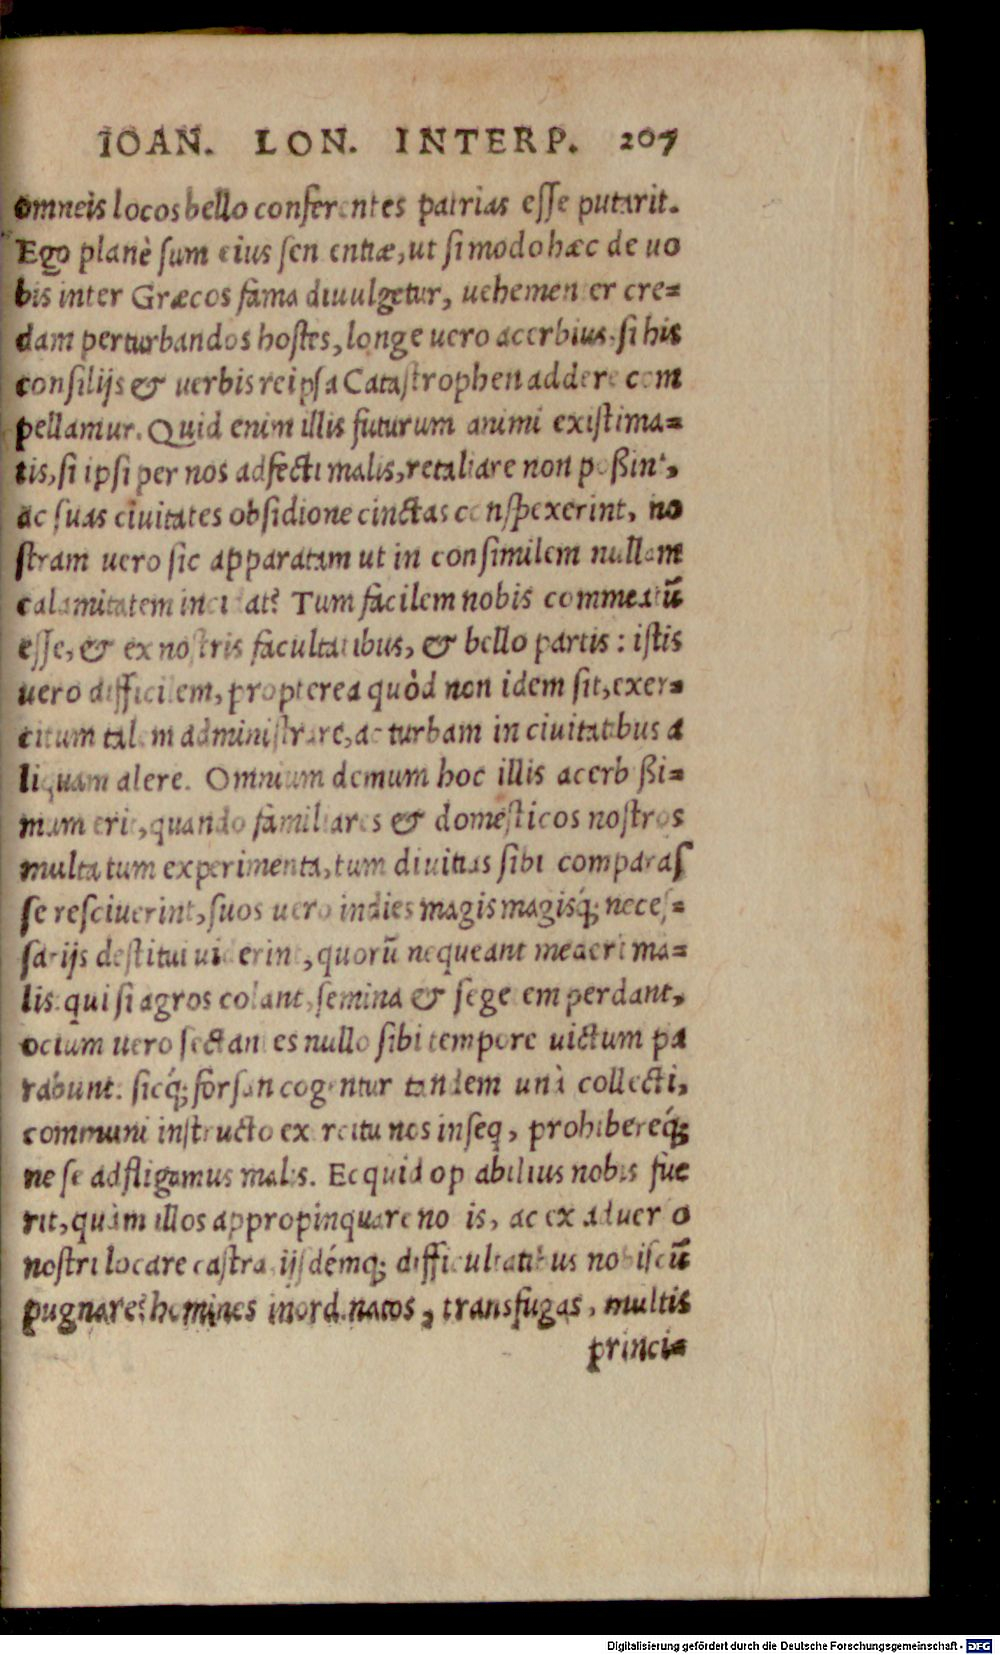 IOAN. LON. INTERP. 207
omneis locos bello conferentes patrias esse putarit.
Ego planè sum eius sententiæ, ut si modo hæc de uo
bis inter Græcos fama diuulgetur, uehementer cre=
dam perturbandos hostes, longe uero acerbius, si his
consilijs & uerbis reipsa Catastrophen addere com
pellamur. Quid enim illis futurum animi existima=
tis, si ipsi per nos adfecti malis, retaliare non poßint,
ac suas ciuitates obsidione cinctas conspexerint, no
stram uero sic apparatam ut in consimilem nullam
calamitatem incidat? Tum facilem nobis commeatū
esse, & ex nostris facultatibus, & bello partis: istis
uero difficilem, propterea quòd non idem sit, exer=
citum talem administrare, ac turbam in ciuitatibus a
liquam alere. Omnium demum hoc illis acerbißi=
mum erit, quando familiares & domesticos nostros
multa tum experimenta, tum diuitias sibi comparas
se resciuerint, suos uero indies magis magisq́; neces=
sarijs destitui uiderint, quorū nequeant mederi ma=
lis: qui si agros colant, semina & segetem perdant,
ocium uero sectantes nullo sibi tempore uictum pa
rabunt: sicq́; forsan cogentur tandem unà collecti,
communi instructo exercitu nos inseq, prohibereq́;
ne se adfligamus malis. Ecquid optabilius nobis fue
rit, quàm illos appropinquare nobis, ac ex aduerso
nostri locare castra, ijsdémq; difficultatibus nobiscū
pugnare? homines inordinatos, transfugas, multis
princi=
Digitalisierung gefördert durch die Deutsche Forschungsgemeinschaft - DFG